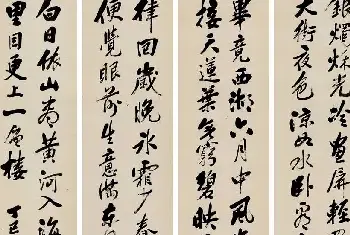 銀燭秋光冷畫屏輕
天街夜色涼如水卧看
畢竟西湖六月中風
接天蓮葉無窮碧映
律回歲晚冰霜少春
便覺眼前生意滿東
白日依山盡黃河入海
里目更上一層樓 丁巳